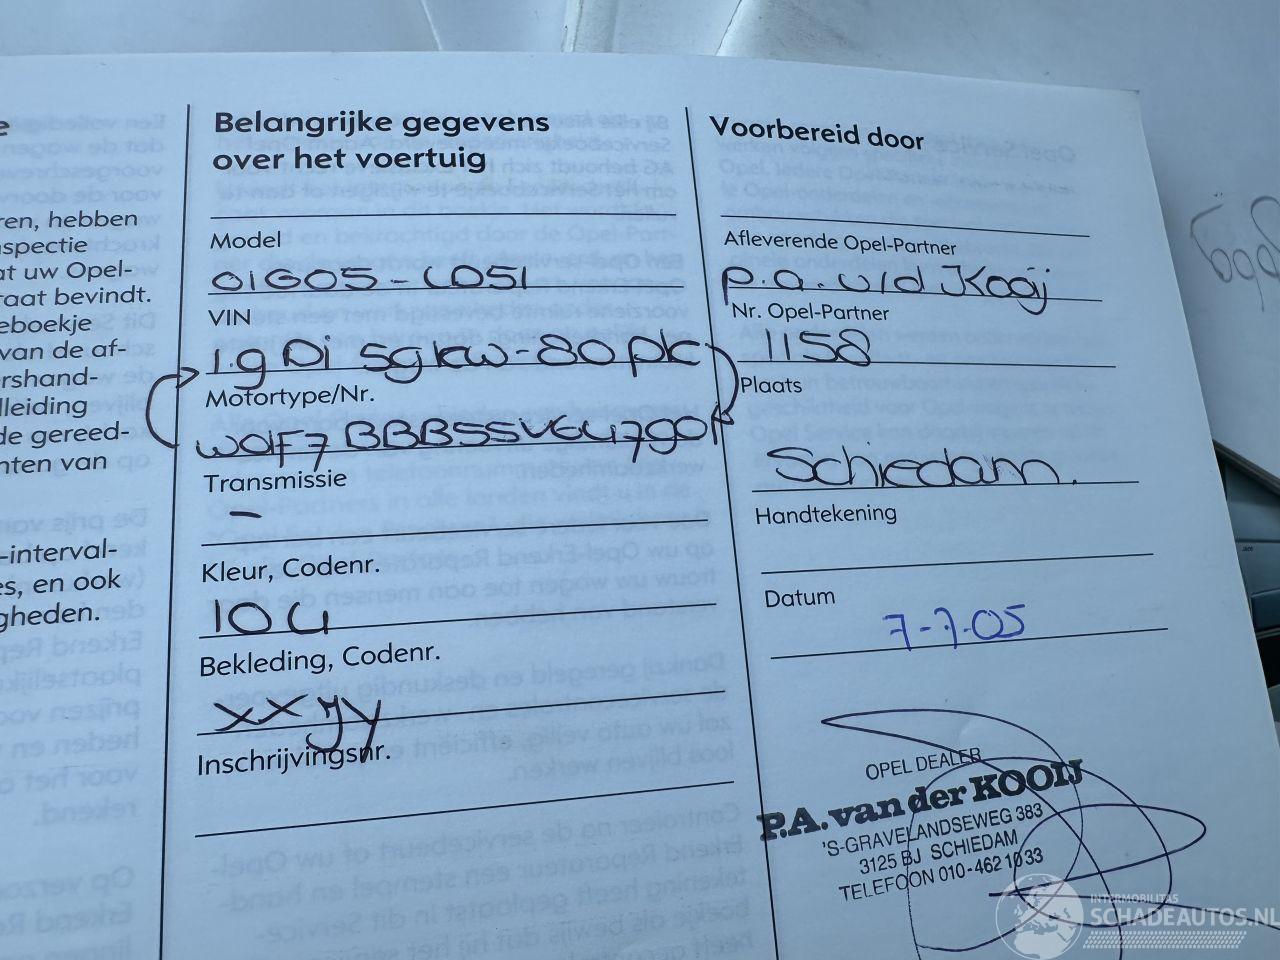 e
ren, hebben
nspectie
at uw Opel-
raat bevindt.
eboekje
van de af-
ershand-
lleiding
de gereed-
nten van
-interval-
es, en ook
gheden.
Belangrijke gegevens
over het voertuig
Model
01G05-LD51
VIN
1.9Di 59kw-80pk
Motortype/Nr.
Transmissie
-
Kleur, Codenr.
10U
Bekleding, Codenr.
xxyy
Inschrijvingsnr.
Voorbereid door
Afleverende Opel-Partner
P.a. v/d Kooij
Nr. Opel-Partner
1158
Plaats
Schiedam.
Handtekening
Datum
7-7-05
OPEL DEALER
P.A. van der KOOIJ
'S-GRAVELANDSEWEG 383
3125 BJ SCHIEDAM
TELEFOON 010-462 10 33
INTERMOBILITAS
SCHADEAUTOS.NL